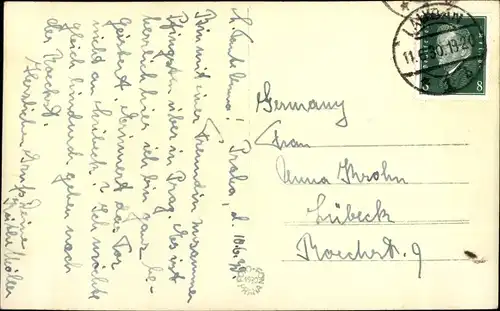 L. Tante Anna! Praha, d. 10.6.30.
Bin mit einer Freundin zusammen
Pfingsten über in Prag. Es ist
herrlich hier, ich bin ganz be-
geistert. Erinnert das Tor
nicht an Lübeck? Ich möchte
gleich hindurch gehen nach
der Roeckst.
Herzlichen Gruß Deine
Käthe Möller
LAUBAN
11.6.30.19-20
8
Germany
Frau
Anna Krohn
Lübeck
Roeckstr. 9